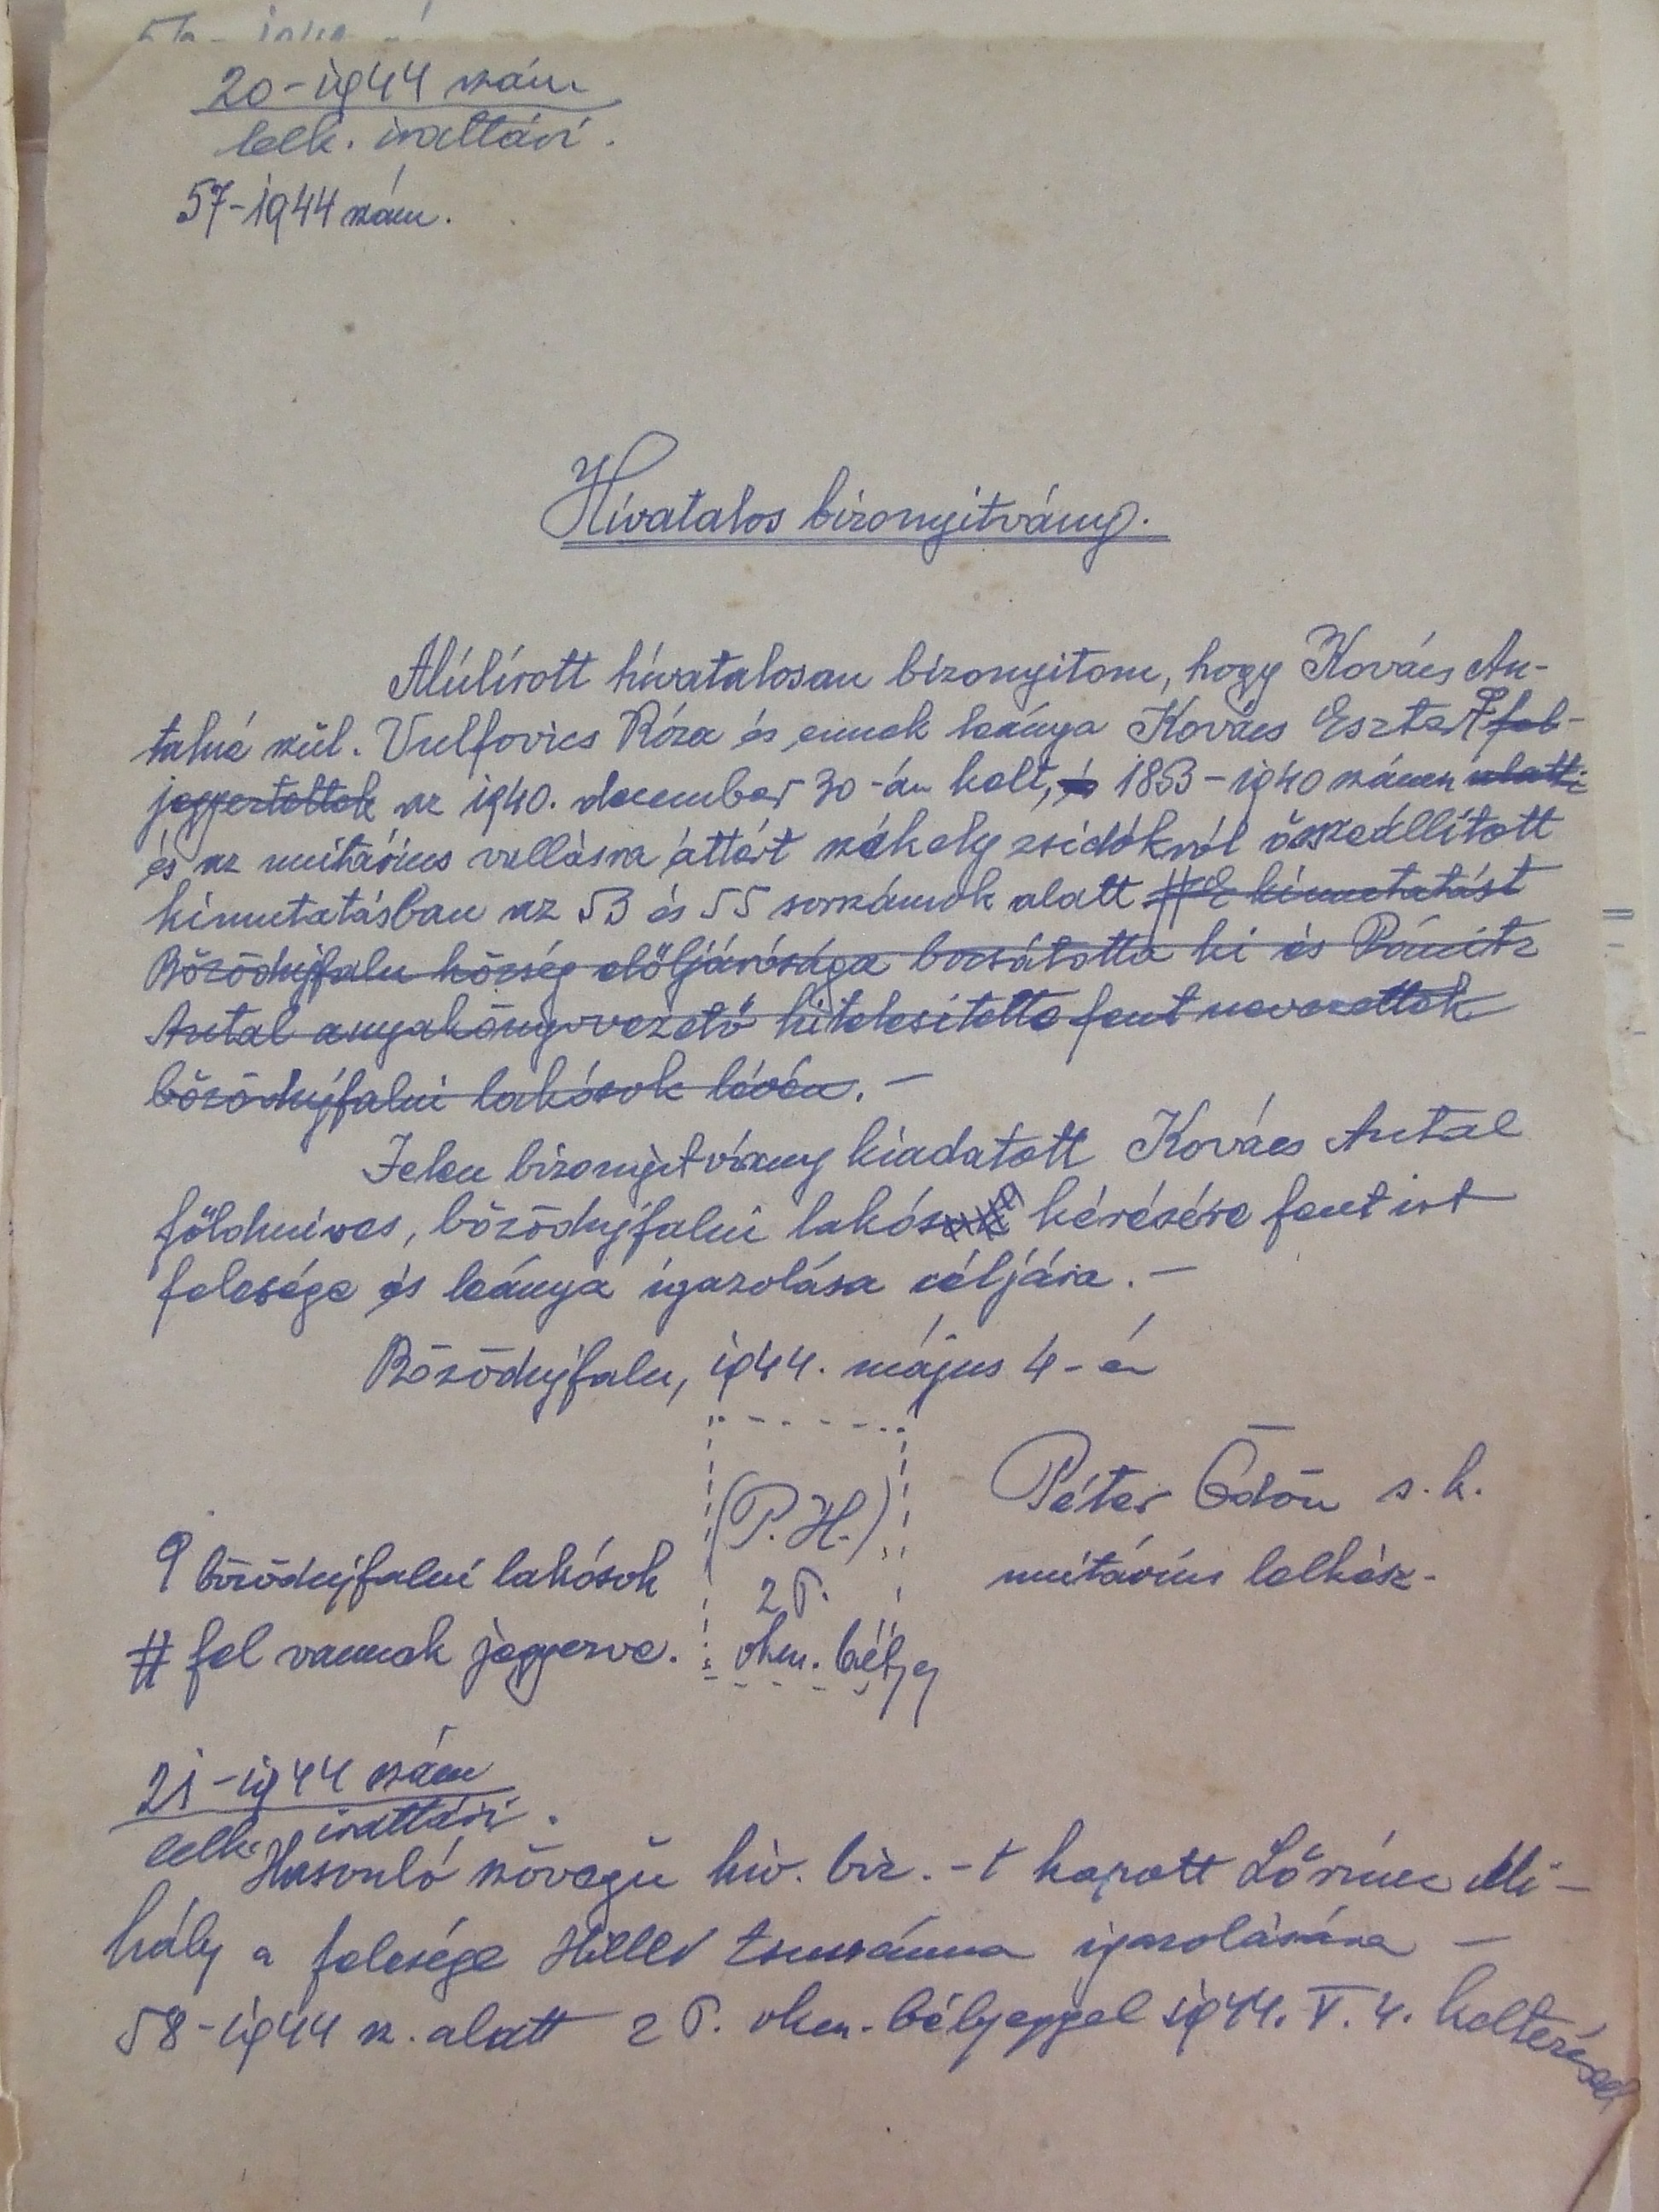 20-1944 szám
lelk. irattári.
57-1944 szám.
Hivatalos bizonyitvány.
Alúlírott hívatalosan bizonyitom, hogy Kovács An-
talné szül. Vulfovics Róza és ennek leánya Kovács Eszter fel-
jegyeztettek az 1940. december 30-án kelt, és 1853-1940 számu alatti
és az unitárius vallásra áttért székely zsidókról összeállított
kimutatásban az 53 és 55 sorszámok alatt # E kimutatást
Bözödujfalu község elöljárósága bocsátotta ki és
Antal anyakönyvvezető hitelesitette fent nevezettek
bözödujfalui lakósok lévén. —
Jelen bizonyitvány kiadatott Kovács Antal
földmives, bözödujfalui lakós kérésére fent irt
felesége és leánya igazolása céljára. —
Bözödujfalu, 1944. május 4-én
(P.H.)
2 P.
okm. bélyeg
Péter Ödön s. k.
unitárius lelkész.
bözödujfalui lakósok
# fel vannak jegyezve.
21-1944 szám
lelk. irattári.
Hasonló szövegü hiv. biz. -t kapott Lőrincz Mi-
hály a felesége Zsuzsánna igazolására —
58-1944 sz. alatt 2 P. okm. bélyeggel 1944. V. 4. keltezéssel